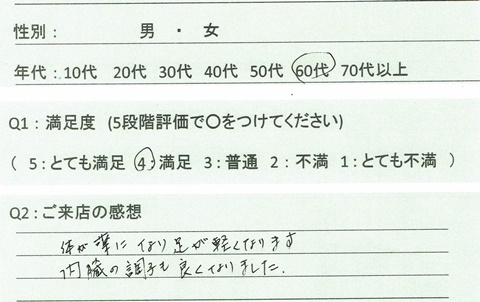 性別： 男 ・ 女
年代：10代 20代 30代 40代 50代 60代 70代以上
Q1：満足度 (5段階評価で〇をつけてください)
( 5：とても満足 4：満足 3：普通 2：不満 1：とても不満 )
Q2：ご来店の感想
体が楽になり足が軽くなります
内臓の調子も良くなりました.